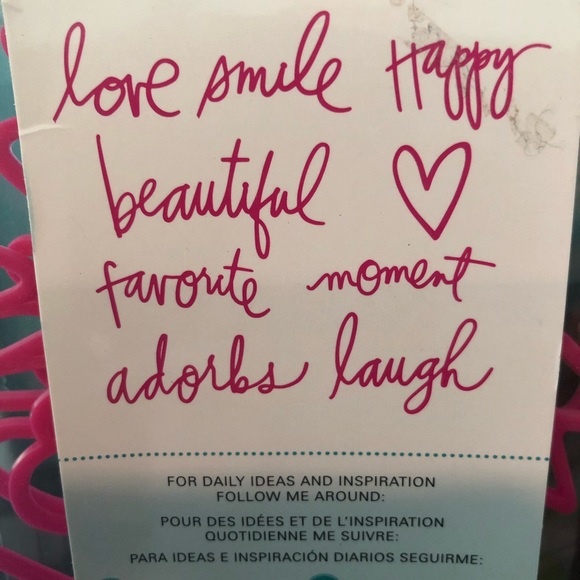 love smile Happy
beautiful
favorite moment
adorbs laugh
FOR DAILY IDEAS AND INSPIRATION
FOLLOW ME AROUND:
POUR DES IDÉES ET DE L'INSPIRATION
QUOTIDIENNE ME SUIVRE:
PARA IDEAS E INSPIRACIÓN DIARIOS SEGUIRME: